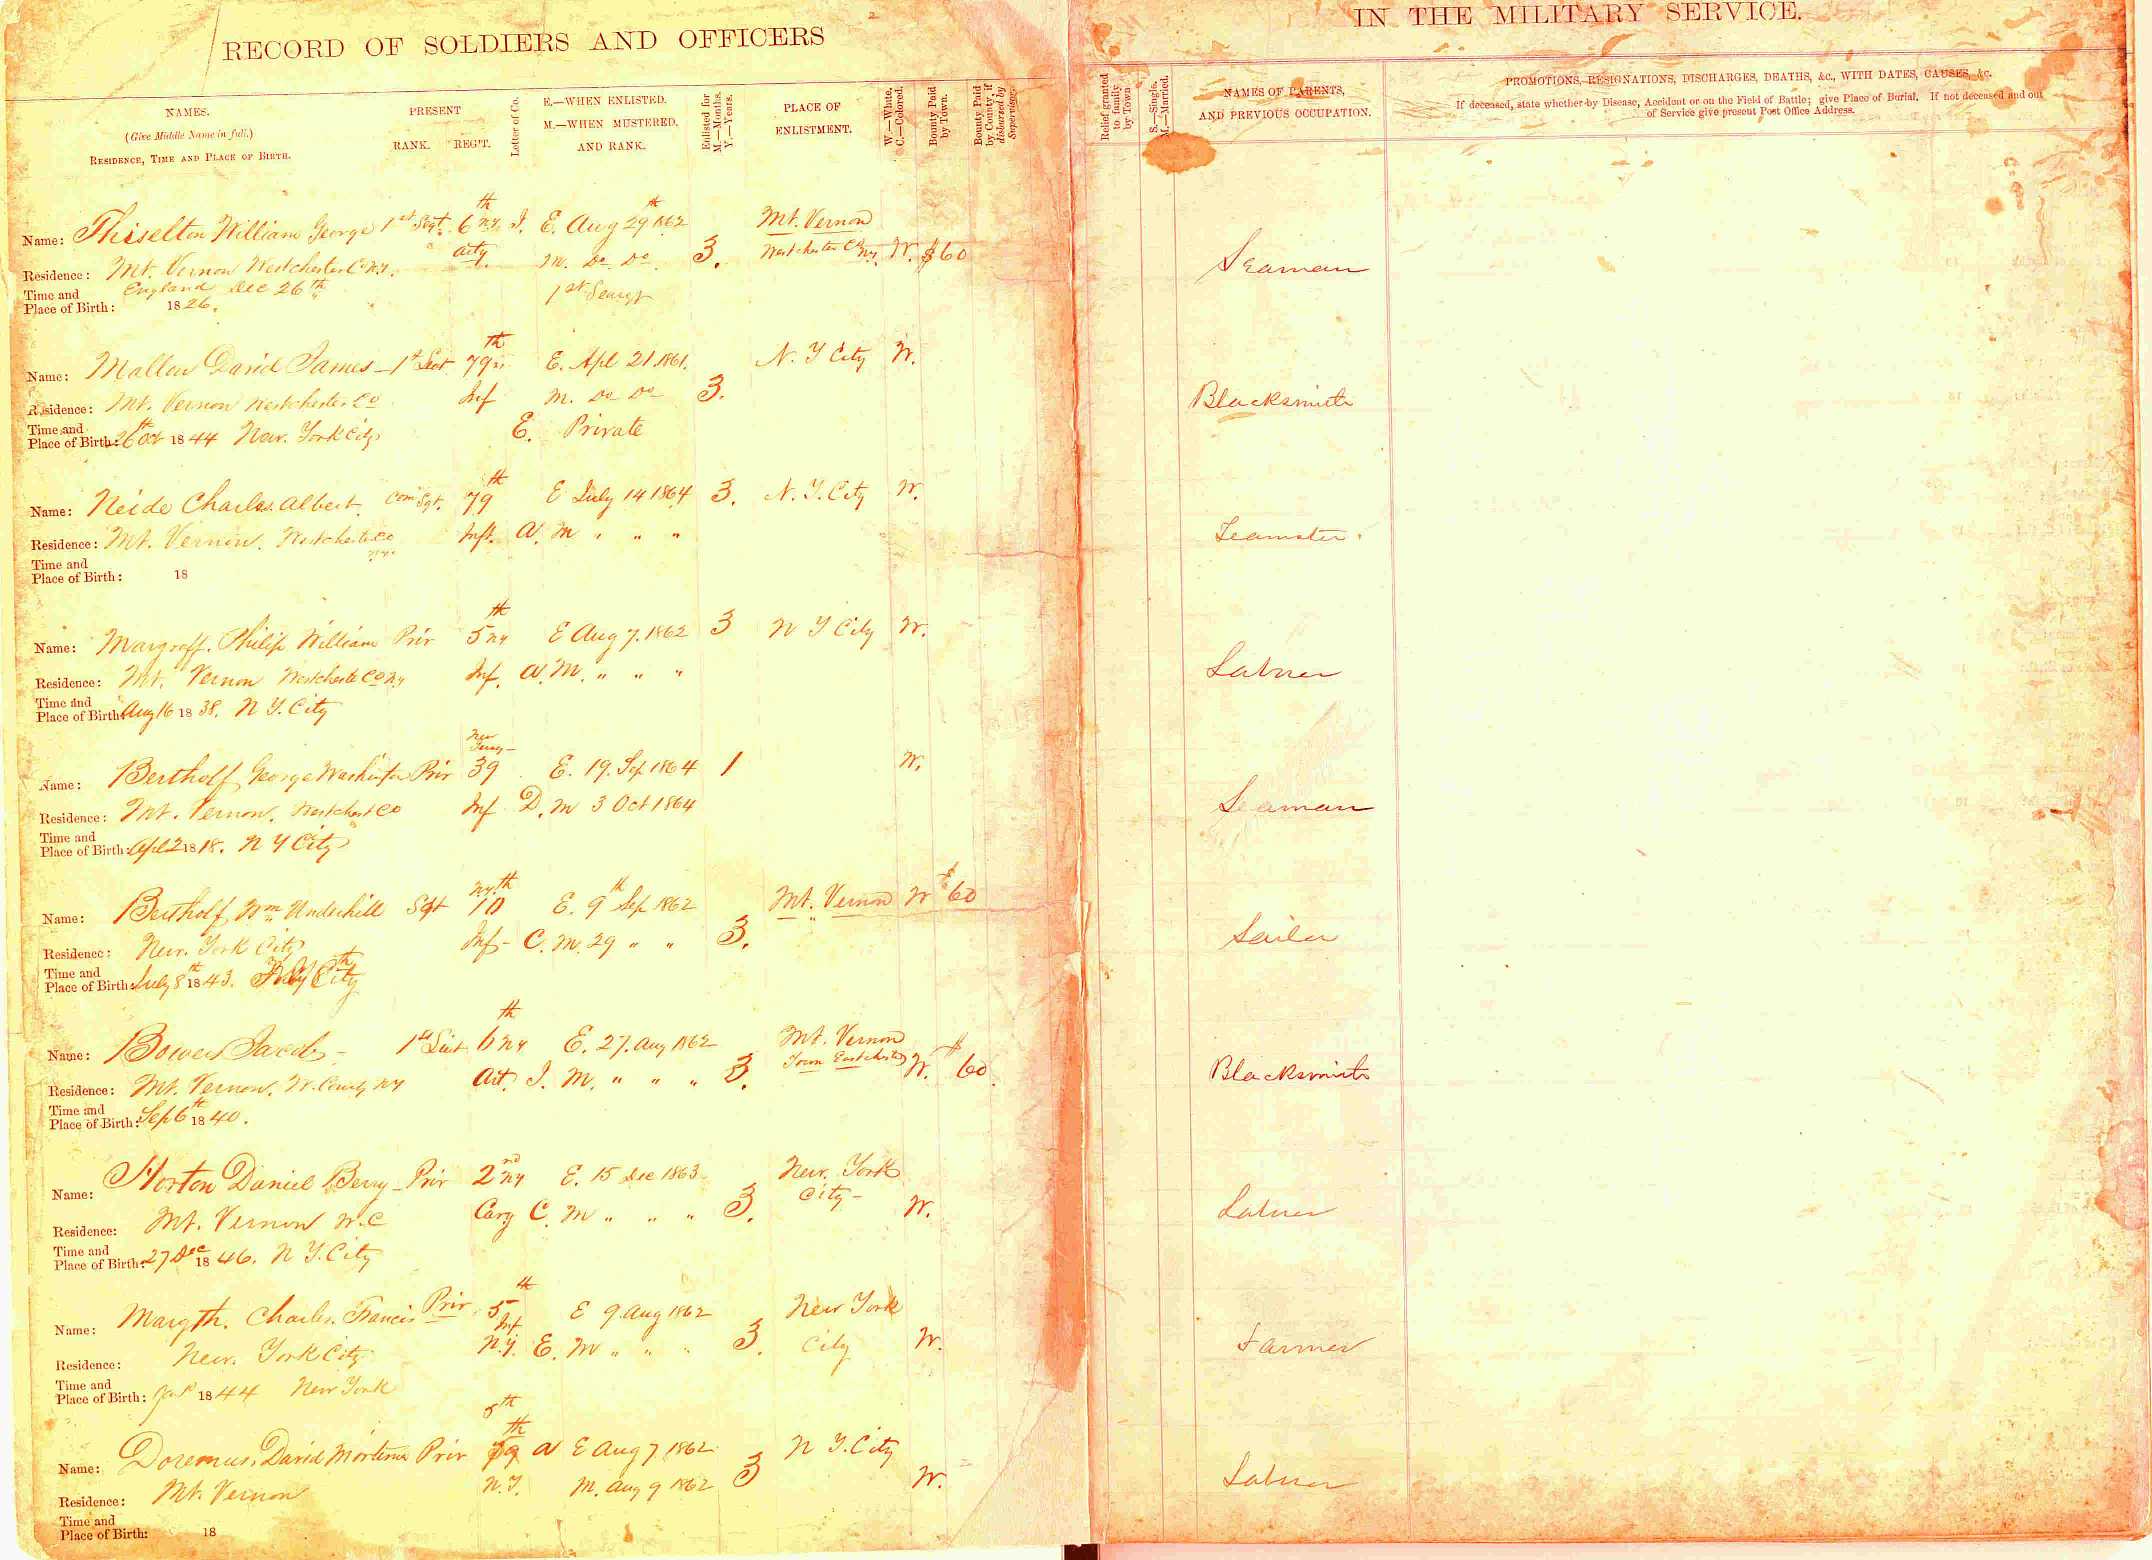 RECORD OF SOLDIERS AND OFFICERS
IN THE MILITARY SERVICE.
NAMES.
(Give Middle Name in full.)
RESIDENCE, TIME AND PLACE OF BIRTH.
PRESENT
RANK. REG'T.
Letter of Co.
E.—WHEN ENLISTED.
M.—WHEN MUSTERED.
AND RANK.
Enlisted for
M—Months.
Y.—Years.
PLACE OF
ENLISTMENT.
W.—White.
C.—Colored.
Bounty Paid
by Town.
Bounty Paid
by County, if
disbursed by
Supervisor.
Relief granted
to family
by Town
S.—Single.
M.—Married.
NAMES OF PARENTS,
AND PREVIOUS OCCUPATION.
PROMOTIONS, RESIGNATIONS, DISCHARGES, DEATHS, &c., WITH DATES, CAUSES, &c.
If deceased, state whether by Disease, Accident or on the Field of Battle; give Place of Burial. If not deceased and out
of Service give present Post Office Address.
Name: Thiselton William George 1st Sergt. 6th N.Y. I. E. Aug 29th 1862 Mt. Vernon
Residence: Mt. Vernon Westchester Co N.Y. Arty. M. Do Do 3. Westchester Co N.Y. W. $60 Seaman
Time and England Dec 26th 1st Seargt
Place of Birth: 1826.
Name: David James 1st 79th E. Apl 21. 1861. N. Y City W.
Residence: Mt. Vernon Westchester Co Inf M. Do Do 3. Blacksmith
Time and
Place of Birth: 26th Oct 1844 New. York City E. Private
Name: Neide Charles Albert. Com Sgt. 79th E July 14 1864 3. N. Y. City W.
Residence: Mt. Vernon. Westchester Co N.Y. Inft. A. M " " " Teamster.
Time and
Place of Birth: 18
Name: Margraff. Philip William Priv 5th NY E Aug 7. 1862 3 N Y City W.
Residence: Mt. Vernon Westchester Co N.Y Inf. A. M. " " " Laborer
Time and
Place of Birth: Aug 16 1838. N Y. City
New Jersey
Name: Bertholf George Washington Priv 39 E. 19. Sep 1864 1 W.
Residence: Mt. Vernon. Westchest Co Inf D. M 3 Oct 1864 Seaman
Time and
Place of Birth: Apl 2 1818. N Y City
Name: Bertholf, Wm Underhill Sgt N.Y. 10th E. 9th Sep 1862 Mt. Vernon W $60
Residence: New. York City Inf- C. M. 29 " " 3. Sailor
Time and
Place of Birth: July 8th 1843. City
Name: Bower Jacob 1st Lieut 6th NY E. 27. Aug 1862 Mt. Vernon
Residence: Mt. Vernon. W. County NY Art. I. M. " " " 3. Town Eastchester W. $60. Blacksmith
Time and
Place of Birth: Sep 6th 1840.
Name: Horton Daniel Berry Priv 2nd NY E. 15 Dec 1863 New. York
Residence: Mt. Vernon W. C Cavy C. M " " " 3. City W. Laborer
Time and
Place of Birth: 27 Dec 1846. N Y. City
Name: Charles Francis Priv 5th Inf E 9. Aug 1862 New York
Residence: New. York City N.Y. E. M " " " 3. City W. Farmer
Time and
Place of Birth: 1844 New York
5th
Name: Doremus. David Mortimer Priv 79th A E Aug 7 1862 N Y. City
Residence: Mt. Vernon N.Y. M. Aug 9 1862 3 W. Laborer
Time and
Place of Birth: 18